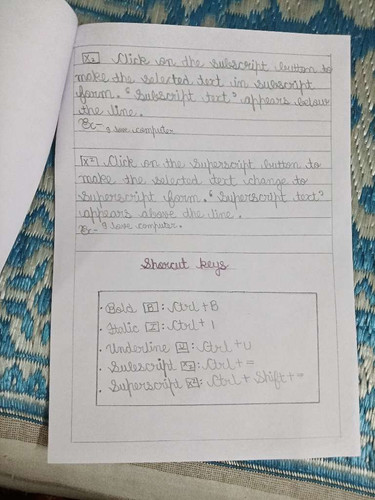 [X₂] Click on the subscript button to
make the selected text in subscript
form. "Subscript text" appears below
the line.
Ex- I love computer
[X²] Click on the superscript button to
make the selected text change to
superscript form. "Superscript text"
appears above the line.
Ex- I love computer.
Shorcut keys
• Bold [B]: Ctrl + B
• Italic [I]: Ctrl + I
• Underline [U]: Ctrl + U
• Subscript [X₂]: Ctrl + =
• Superscript [X²]: Ctrl + Shift + =